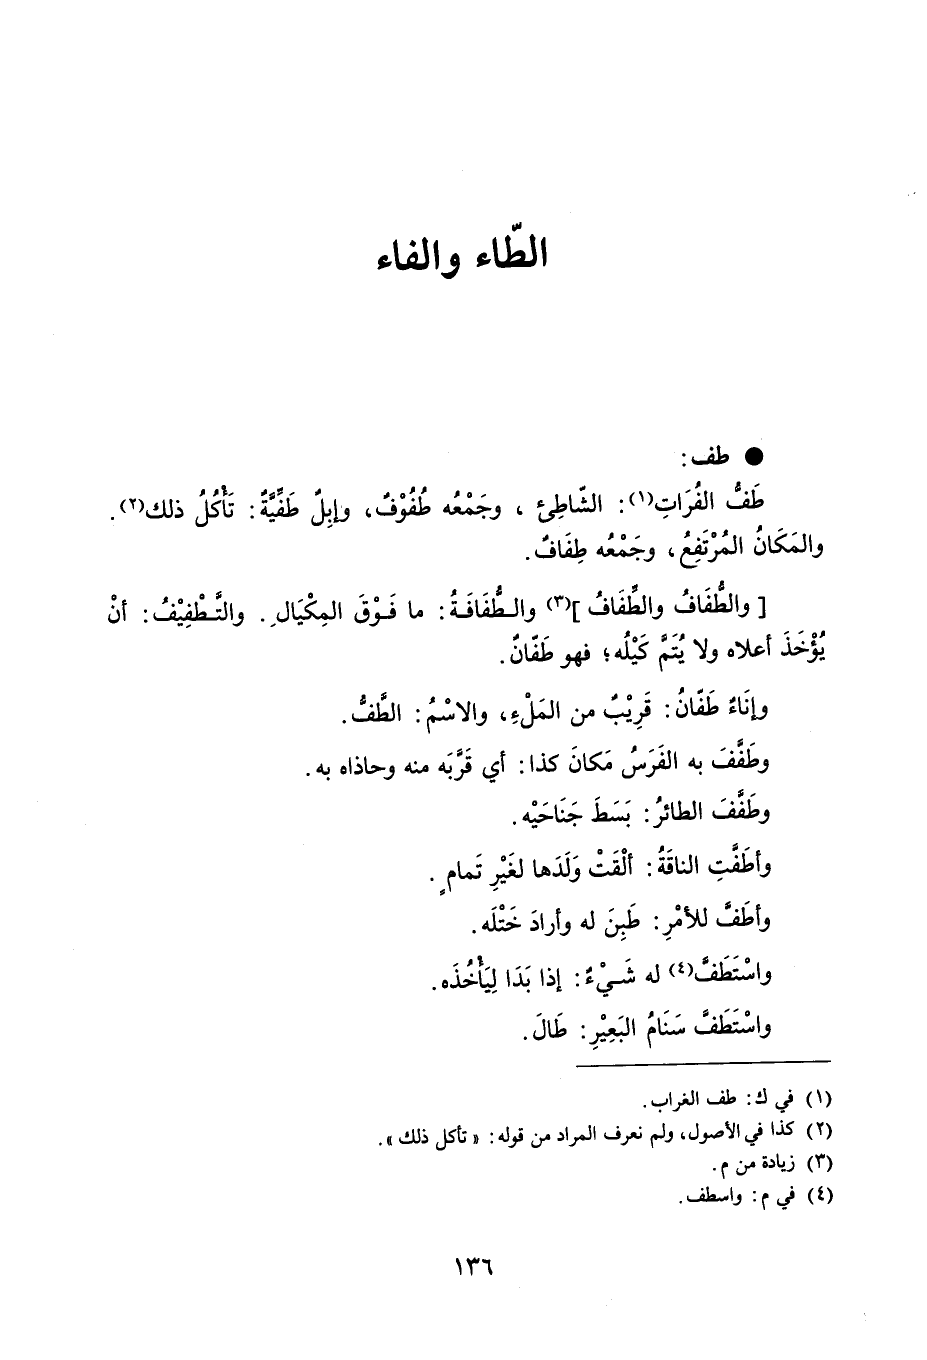 الطّاء والفاء
● طف:
طَفُّ الفُرَاتِ(١): الشّاطِئُ ، وجَمْعُه طُفُوْفٌ، وإبِلٌ طَفِّيَّةٌ: تَأْكُلُ ذلك(٢).
والمَكَانُ المُرْتَفِعُ، وجَمْعُه طِفَافٌ.
[ والطُّفَافُ والطِّفَافُ ](٣) والطُّفَافَةُ: ما فَوْقَ المِكْيَالِ. والتَّطْفِيْفُ: أنْ
يُؤْخَذَ أعلاه ولا يُتَمَّ كَيْلُه؛ فهو طَفّانٌ.
وإنَاءٌ طَفّانُ: قَرِيْبٌ من المَلْءِ، والاسْمُ: الطَّفُّ.
وطَفَّفَ به الفَرَسُ مَكانَ كذا: أي قَرَّبَه منه وحاذاه به.
وطَفَّفَ الطائرُ: بَسَطَ جَنَاحَيْه.
وأطَفَّتِ الناقَةُ: ألْقَتْ وَلَدَها لغَيْرِ تَمامٍ.
وأطَفَّ للأمْرِ: طَبِنَ له وأرادَ خَتْلَه.
واسْتَطَفَّ(٤) له شَيْءٌ: إذا بَدَا لِيَأْخُذَه.
واسْتَطَفَّ سَنَامُ البَعِيْرِ: طَالَ.
(١) في ك: طف الغراب.
(٢) كذا في الأصول، ولم نعرف المراد من قوله: « تأكل ذلك ».
(٣) زيادة من م.
(٤) في م: واسطف.
١٣٦